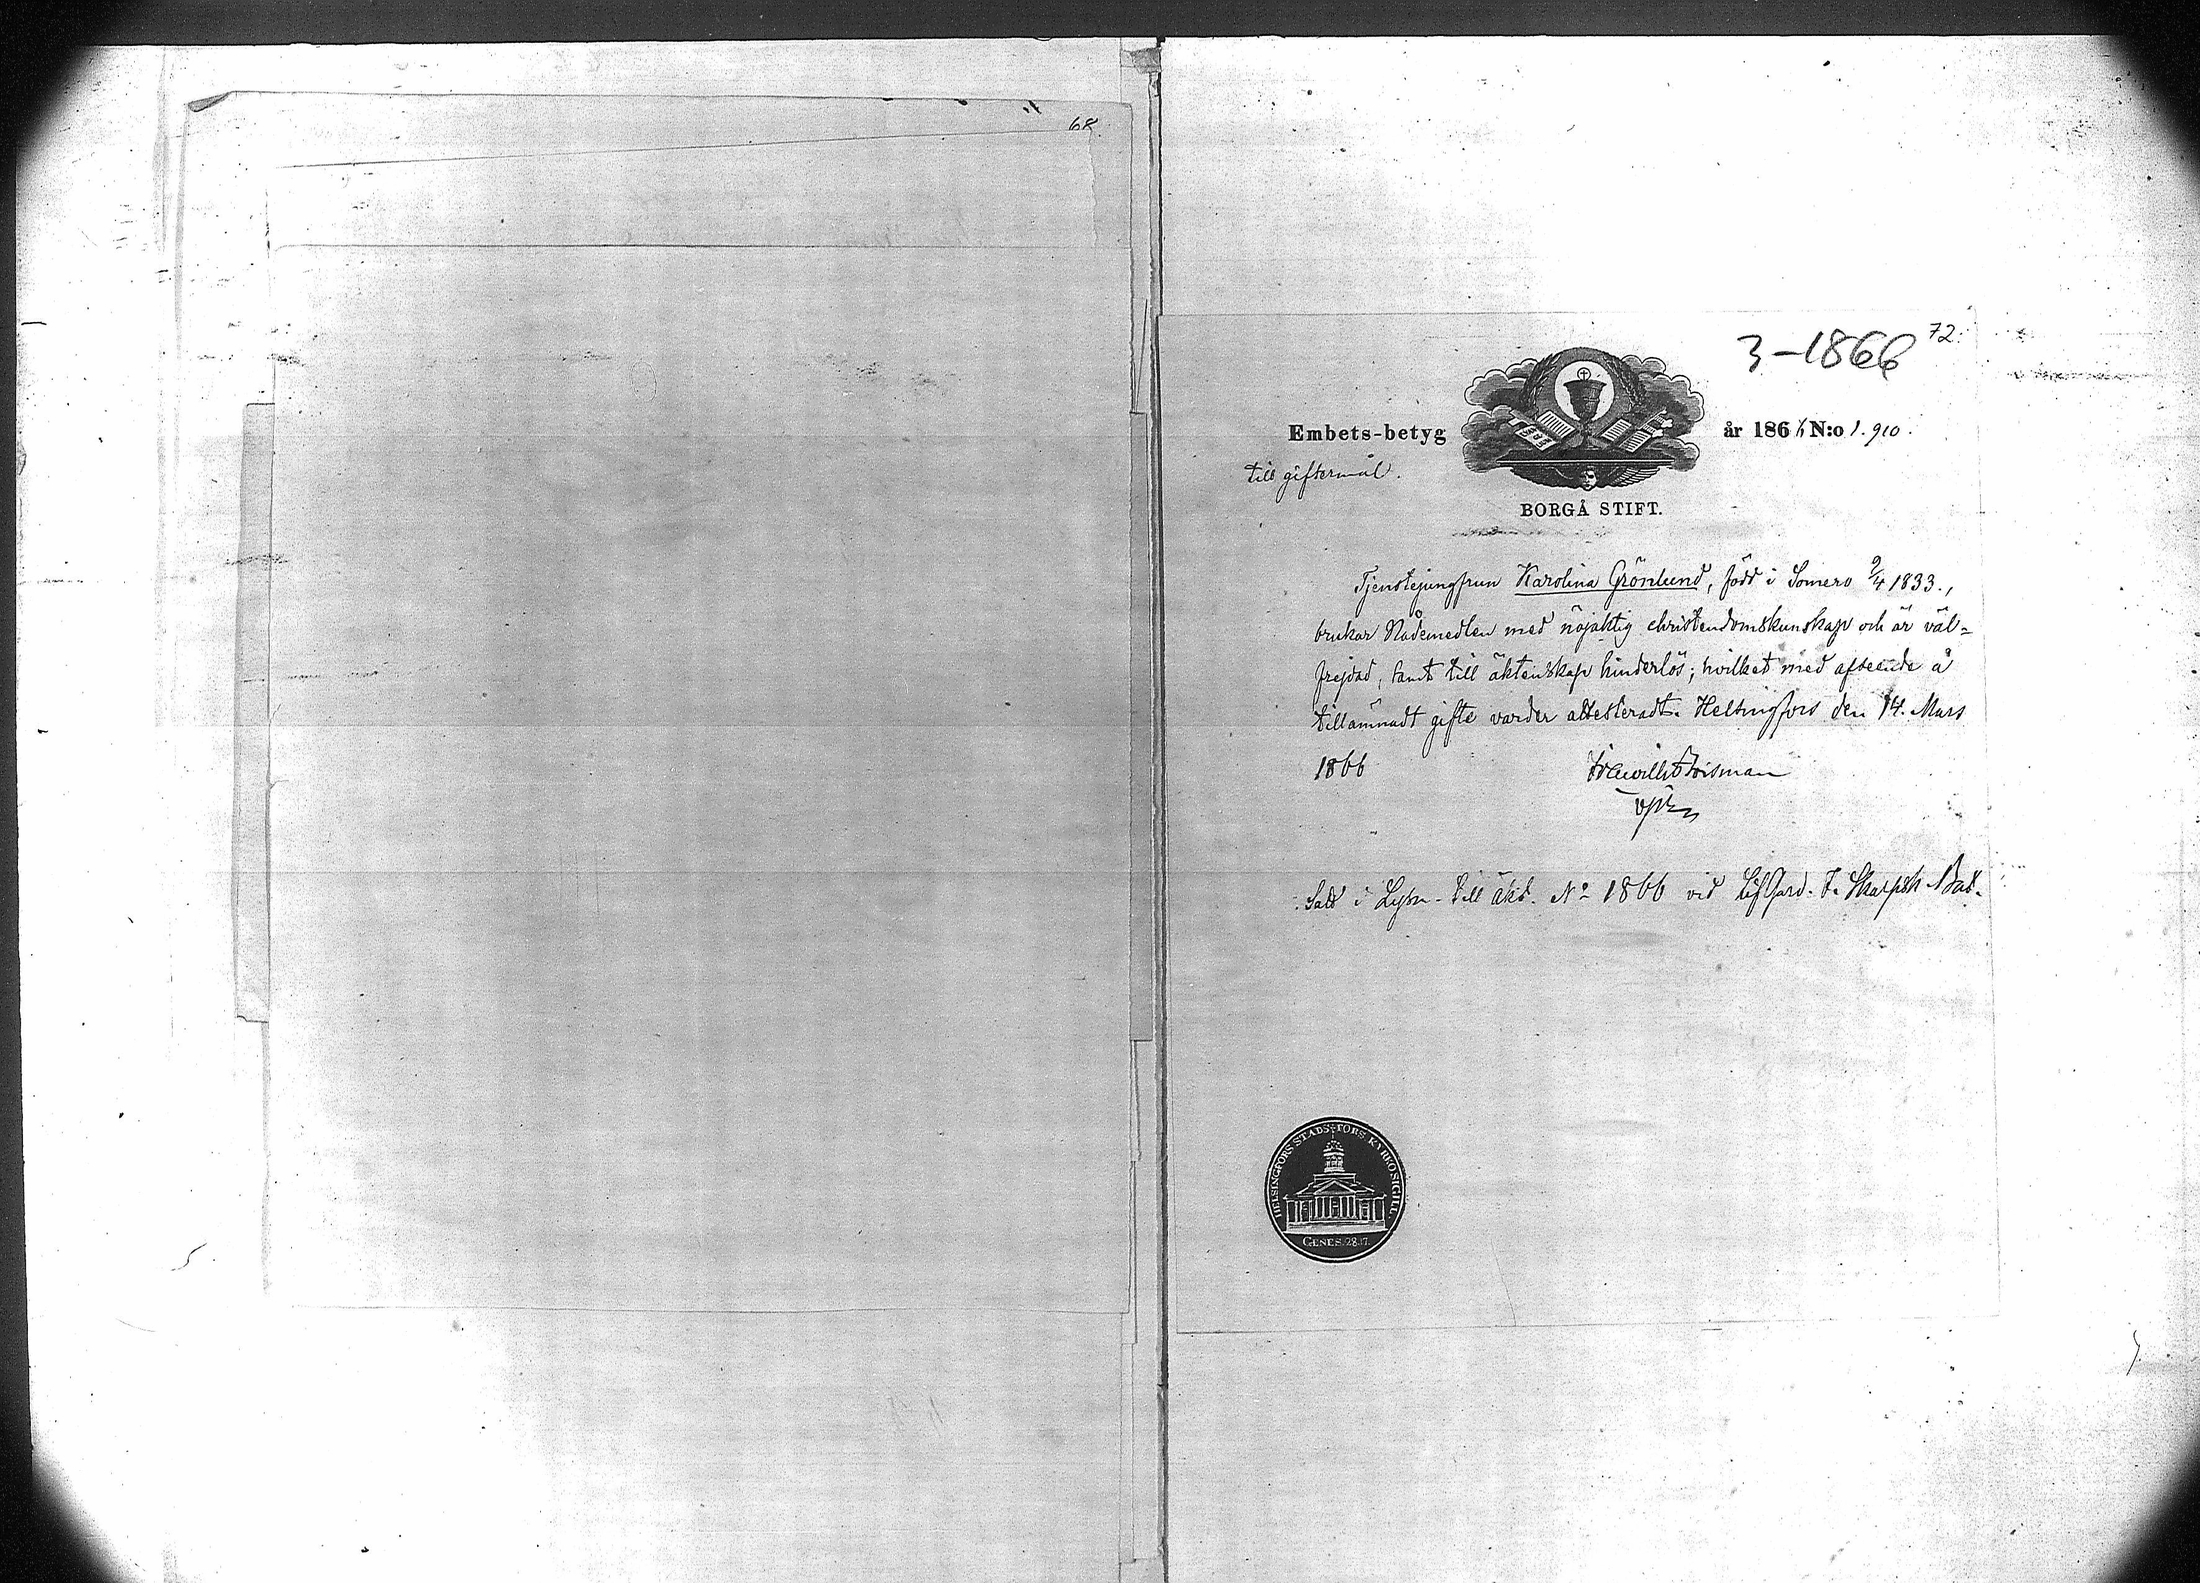 68.
72.
3-1866
Embets-betyg år 1866 N:o 1.910.
till giftermål.
BORGÅ STIFT.
Tjenstejungfrun Karolina Grönlund, född i Somero 9/4 1833.,
brukar Nådemedlen med nöjaktig christendomskunskap och är väl-
frejdad, samt till äktenskap hinderlös; hvilket med afseende å
tillämnadt gifte varder attesteradt. Helsingfors den 14. Mars
1866
till äkt. No 1866 vid LifGard. F. Skarpsk. Bat.
HELSINGFORS STADS FÖRS. KYRKOSIGILL.
GENES. 28.17.